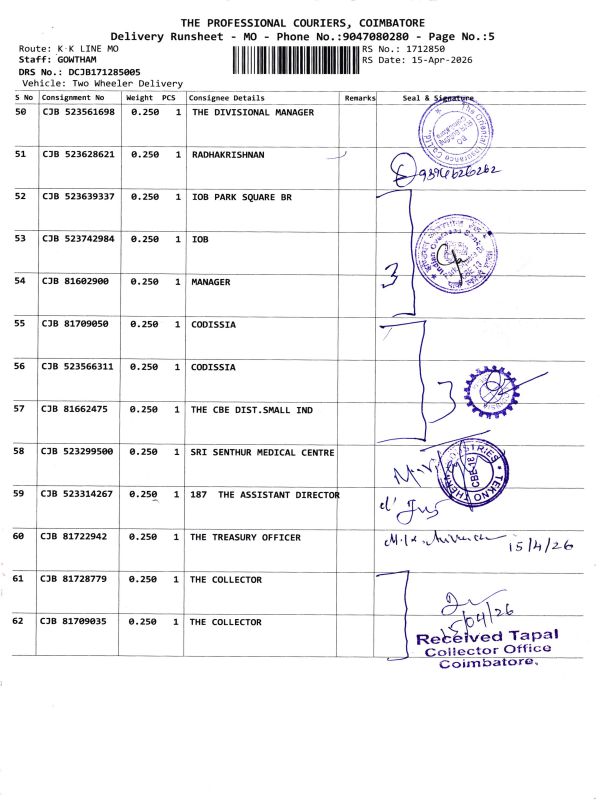 THE PROFESSIONAL COURIERS, COIMBATORE
Delivery Runsheet - MO - Phone No.:9047080280 - Page No.:5
Route: K K LINE MO RS No.: 1712850
Staff: GOWTHAM RS Date: 15-Apr-2026
DRS No.: DCJB171285005
Vehicle: Two Wheeler Delivery
S No Consignment No Weight PCS Consignee Details Remarks Seal & Signature
50 CJB 523561698 0.250 1 THE DIVISIONAL MANAGER
51 CJB 523628621 0.250 1 RADHAKRISHNAN
52 CJB 523639337 0.250 1 IOB PARK SQUARE BR
53 CJB 523742984 0.250 1 IOB
54 CJB 81602900 0.250 1 MANAGER 3
55 CJB 81709050 0.250 1 CODISSIA
56 CJB 523566311 0.250 1 CODISSIA
57 CJB 81662475 0.250 1 THE CBE DIST.SMALL IND 3
58 CJB 523299500 0.250 1 SRI SENTHUR MEDICAL CENTRE
59 CJB 523314267 0.250 1 187 THE ASSISTANT DIRECTOR
60 CJB 81722942 0.250 1 THE TREASURY OFFICER 15/4/26
61 CJB 81728779 0.250 1 THE COLLECTOR
62 CJB 81709035 0.250 1 THE COLLECTOR 15/04/26
Received Tapal
Collector Office
Coimbatore.